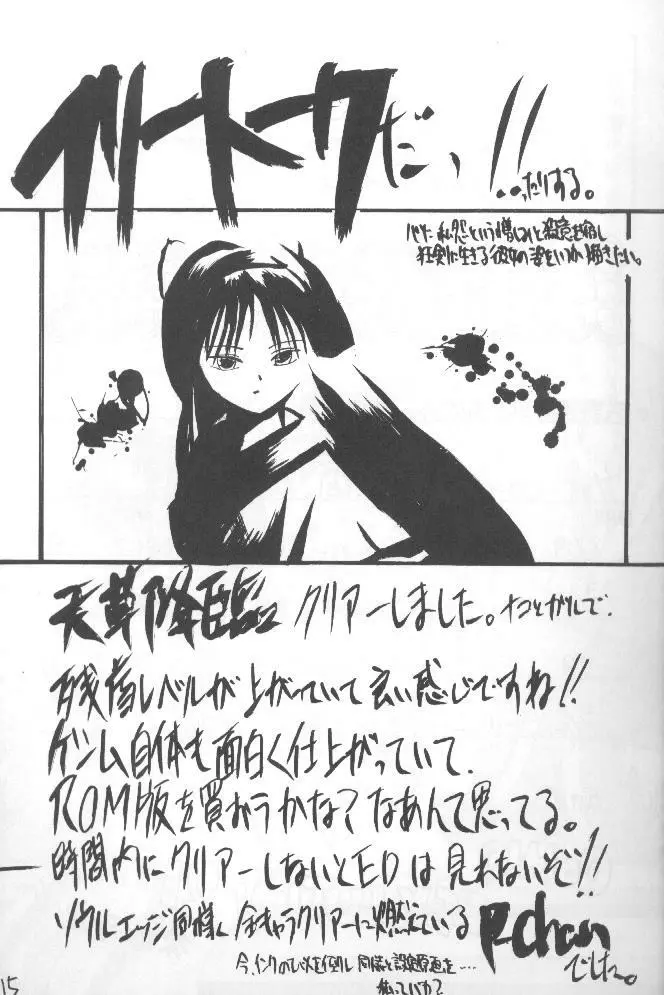 フリートークだっ!!
…ったりする。
という憎しみと殺意を宿し
狂剣に生きる彼女の姿をいつか描きたい。
天草降臨 クリアーしました。ナコとガルで。
残酷レベルが上がっていて良い感じですね!!
ゲーム自体も面白く仕上がっていて、
ROM版を買おうかな?なあんて思ってる。
時間内にクリアーしないとEDは見れないぞ!!
ソウルエッジ同様、全キャラクリアーに燃えている R-chan
でした。
今、インクの
15